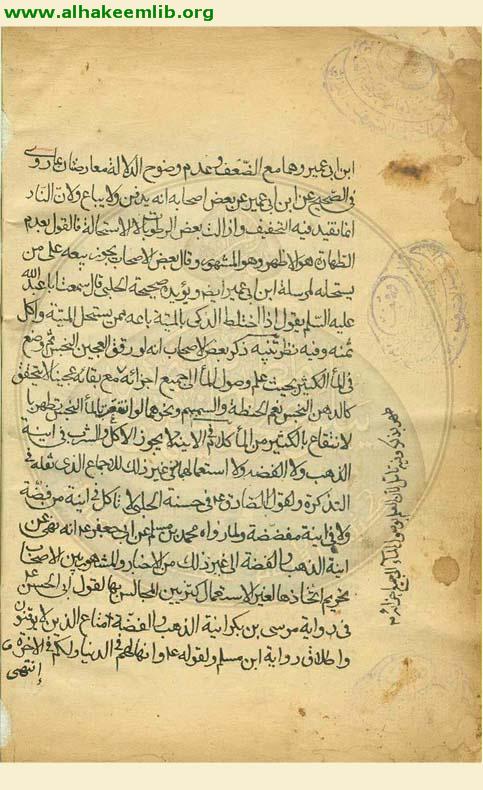 www.alhakeemlib.org
ابن ابي عمير وهما مع الضعف وعدم وضوح الدلالة معارضان بما روى
في الصحيح عن ابن ابي عمير عن بعض اصحابه انه يدفن ولا يباع ولان النار
انما يفيد فيه التخفيف وازالت بعض الرطوبات لا الاستحالة فالقول بعدم
الطهارة هو الاظهر وهو المشهور وقال بعض الاصحاب يجوز بيعه على من
يستحله لمرسلة ابن ابي عمير ايض ويؤيده صحيحة الحلبي قال سمعت ابا عبد الله
عليه السلم يقول اذا اختلط الذكي بالميتة باعه ممن يستحل الميتة واكل
ثمنه وفيه نظر تنبيه ذكر بعض الاصحاب انه لو رقق العجين النجس ثم وضع
في الماء الكثير بحيث علم وصول الماء الى جميع اجزائه مع بقائه عجينا لا يتحقق
كالدهن النجس نعم الحنطة والسمسم ونحوهما لو انتقعتا بالماء النجس تطهر با
لانتقاع بالكثير من الماء كلام في الانية لا يجوز الاكل والشرب في انية
الذهب ولا الفضة ولا استعمالها في غير ذلك للاجماع الذي نقله في
التذكرة ولقول الصادق ع في حسنة الحلبي لا تاكل في انية من فضة
ولا في انية مفضضة ولما رواه محمد بن مسلم عن ابي جعفر ع انه نهى عن
انية الذهب والفضة الى غير ذلك من الاخبار والمشهور بين الاصحاب
تحريم اتخاذها لغير الاستعمال كتزيين المجالس بها لقول ابي الحسن ع
في رواية موسى بن بكر انية الذهب والفضة متاع الذين لا يوقنون
واطلاق رواية ابن مسلم ولقوله ع وانها لهم في الدنيا ولكم في الاخرة
انتهى